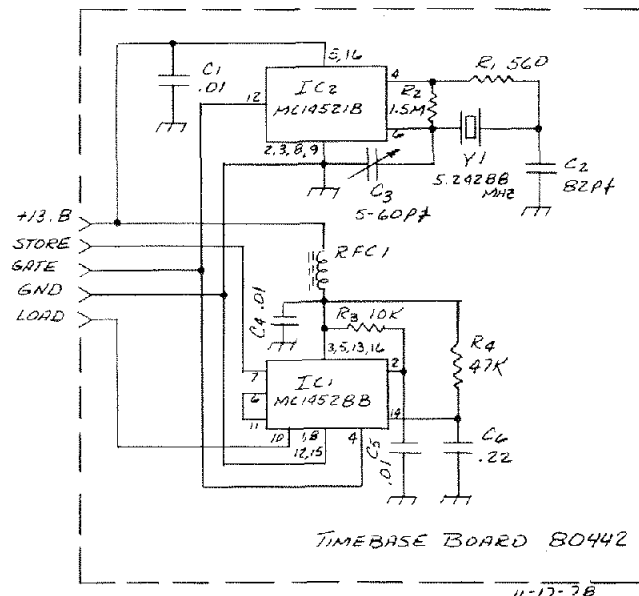 5,16
C1
.01
IC2
MC14521B
12
4
6
2,3,8,9
R1 560
R2
1.5M
Y1
5.24288
MHZ
C2
82pf
C3
5-60pf
+13.8
STORE
GATE
GND
LOAD
RFC1
C4 .01
R3 10K
3,5,13,16
R4
47K
IC1
MC14528B
7
6
11
2
14
10
1,8
12,15
4
C5
.01
C6
.22
TIMEBASE BOARD 80442
11-17-78